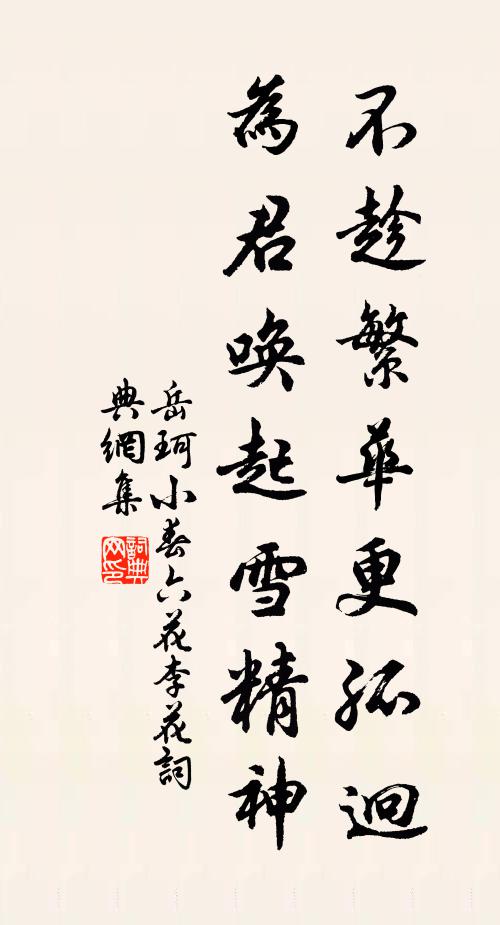 不趁繁華更孤迥
為君喚起雪精神
岳珂小春六花李花詞
典網集
詞典網印